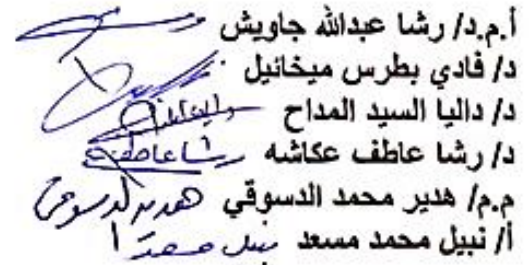 أ.م.د/ رشا عبدالله جاويش
د/ فادي بطرس ميخائيل
د/ داليا السيد المداح
د/ رشا عاطف عكاشه رشا عاطف
م.م/ هدير محمد الدسوقي هدير الدسوقي
أ/ نبيل محمد مسعد نبيل محمد